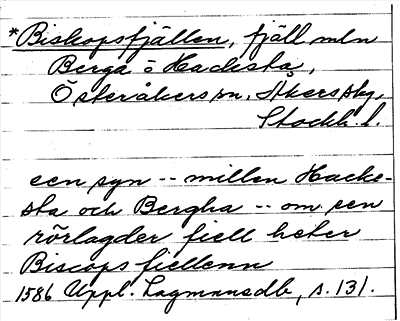 *Biskopsfjällen, fjäll mln
Berga o Hacksta,
Österåkers sn, Åkers skg,
Stockh. l.
een syn -- millen Hacke-
sta och Bergha -- om een
rörlagder fiell heter
Biscops fiellenn
1586 Uppl. Lagmansdb, s. 131.